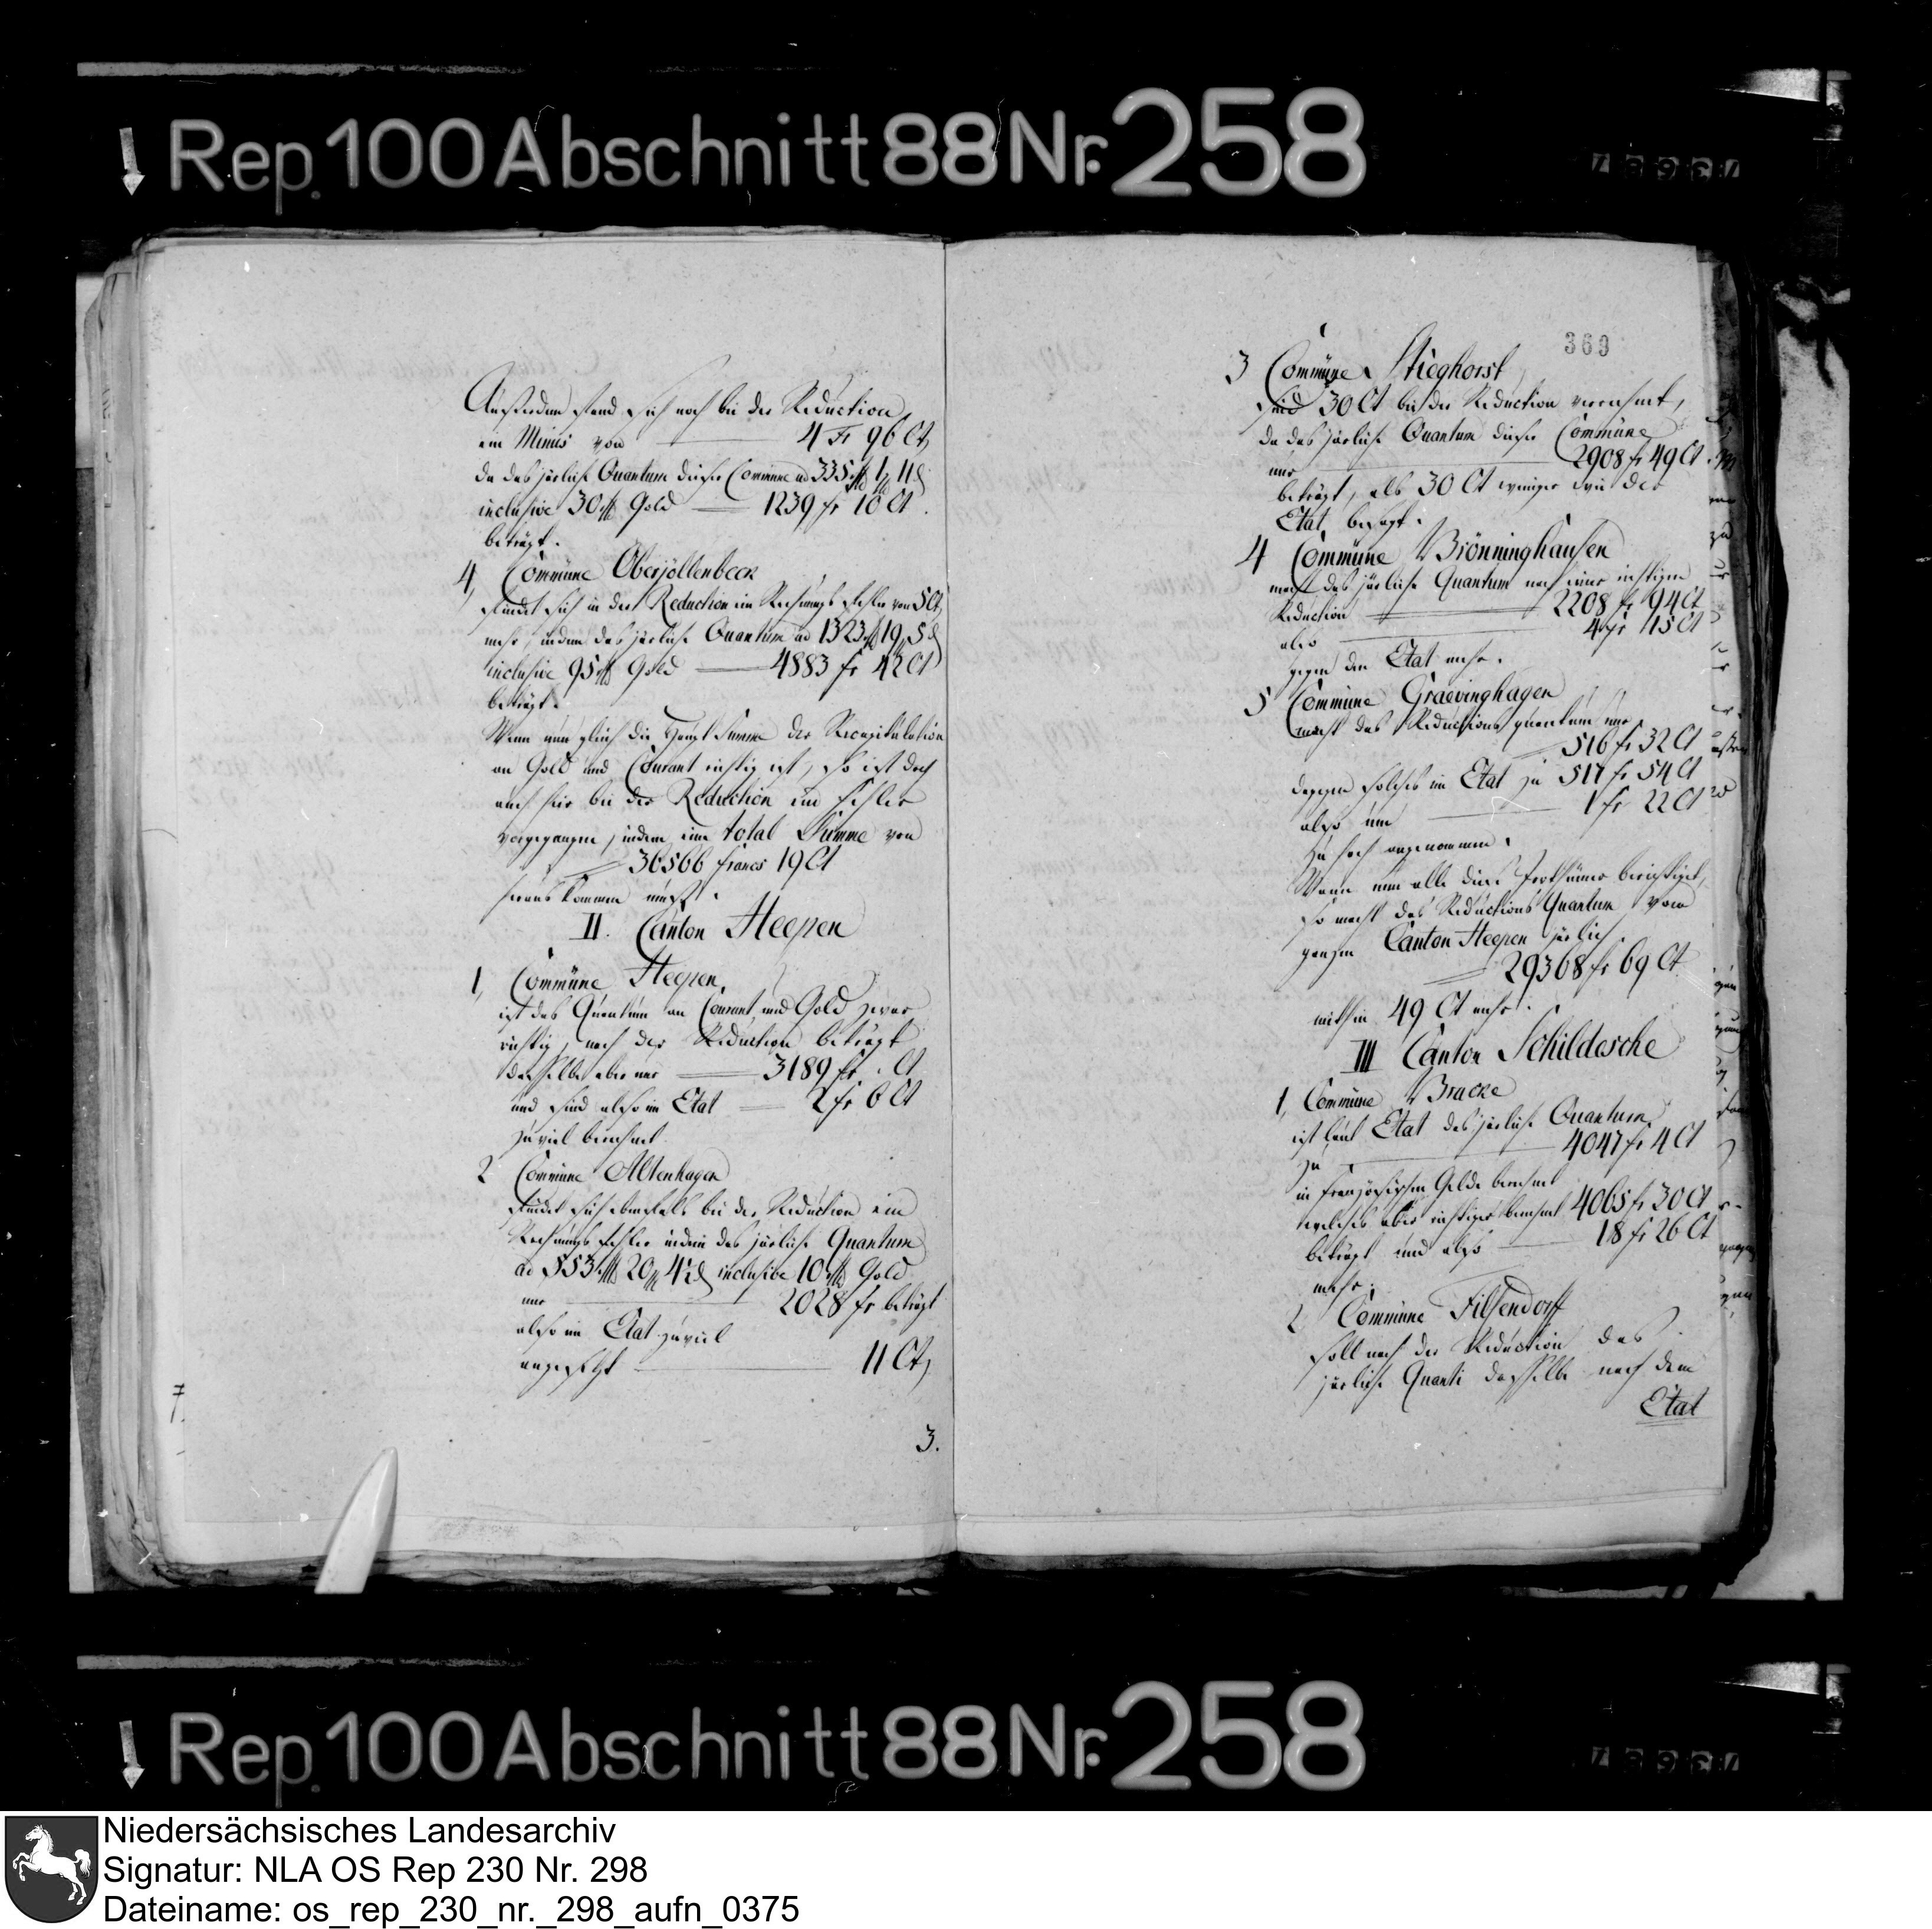 Rep. 100 Abschnitt 88 Nr. 258
Außerdem fand sich noch bei der Reduction
ein Minus von 4 Fr 96 Ct,
da das järliche Quantum dieser Commüne ad 335
inclusive 30 Gold 1239 fr 10 Ct.
beträgt.
4, Commüne Oberjöllenbeck
findet sich in der Reduction ein Rechnungsfehler von 5 Ct,
mehr, indem das järliche Quantum ad 1323
inclusive 95 Gold 4883 fr 42 Ct
beträgt.
Wenn nun gleich die Haupt Summe der Recapitulation
an Gold und Courant richtig ist, so ist doch
auch hier bei der Reduction ein Fehler
vorgegangen, indem eine total Summe von
36566 francs 19 Ct
heraus kommen muß.
II. Canton Heepen
1, Commüne Heepen,
ist das Quantum an Courant und Gold zwar
richtig, nach der Reduction beträgt
dasselbe aber nur 3189 fr . Ct
und sind also im Etat 2 fr 6 Ct
zuviel berechnet.
2 Commüne Altenhagen
findet sich ebenfals bei der Reduction ein
Rechnungsfehler indem das järliche Quantum
ad 553 20 inclusive 10 Gold
nur 2028 fr beträgt
also im Etat zuviel
angesetzt 11 Ct,
3.
369
3 Commüne Stieghorst
sind 30 Ct bei der Reduction
da das järliche Quantum dieser Commüne
nur 2908 fr 49 Ct
beträgt, als 30 Ct weniger wie der
Etat besagt.
4 Commüne Brönninghausen
macht das järliche Quantum nach einer richtigen
Reduction 2208 fr 94 Ct
also 4 fr 15 Ct
gegen den Etat mehr.
5 Commüne Graevinghagen
macht das Reductions quantum nur
516 fr 32 Ct
dagegen solches im Etat zu 517 fr 54 Ct
also um 1 fr 22 Ct
zu hoch angenommen.
Wenn nun alle diese Irrthümer berichtiget,
so macht das Reductions Quantum vom
ganzen Canton Heepen järlich
29368 fr 69 Ct
mithin 49 Ct mehr.
III Canton Schildesche
1, Commüne Bracke
ist laut Etat das järliche Quantum
zu 4047 fr 4 Ct
in französischem Gelde berechnet
welches aber richtiger berechnet 4065 fr 30 Ct
beträgt und also 18 fr 26 Ct
mehr.
2, Commüne Filsendorff
soll nach der Reduction des
järlichen Quanti dasselbe nach dem
Etat
Rep. 100 Abschnitt 88 Nr. 258
Niedersächsisches Landesarchiv
Signatur: NLA OS Rep 230 Nr. 298
Dateiname: os_rep_230_nr._298_aufn_0375